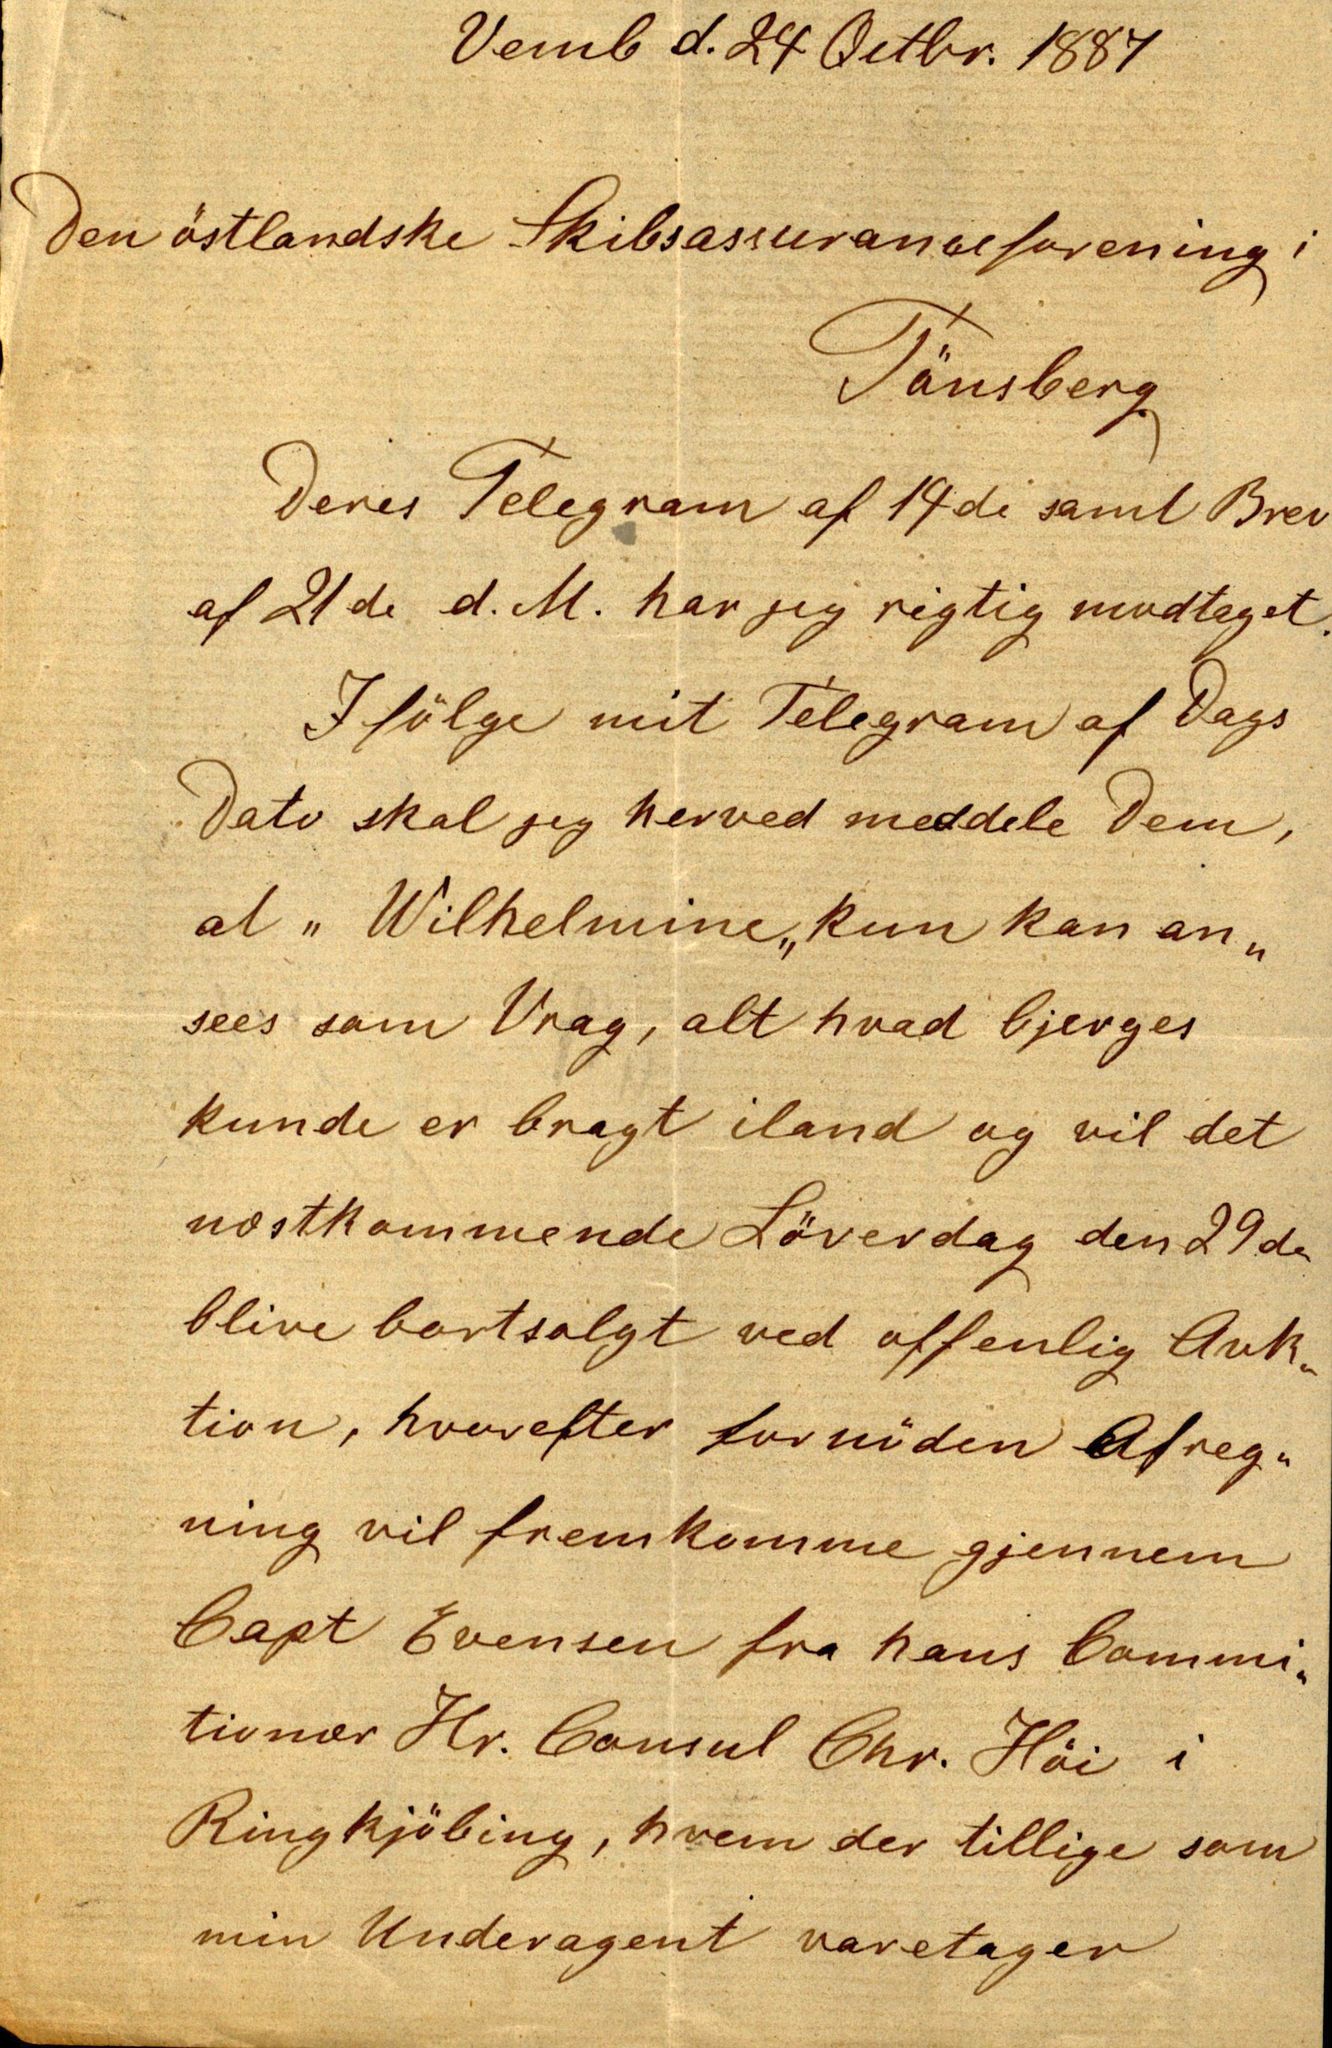 Vemb d. 24 Octbr. 1887
Den östlandske Skibsassuranceforening i
Tönsberg
Deres Telegram af 14de samt Brev
af 21de d. M. har jeg rigtig modtaget.
Ifölge mit Telegram af Dags
Dato skal jeg herved meddele Dem,
at „ Wilhelmine„ kun kan an„
sees som Vrag, alt hvad bjerges
kunde er bragt iland og vil det
næstkommende Löverdag den 29de
blive bortsolgt ved offenlig Auk„
tion, hvorefter fornöden Afreg„
ning vil fremkomme gjennem
Capt Evensen fra hans Commi„
tionær Hr. Consul Chr. Höi i
Ringkjöbing, hvem der tillige som
min Underagent varetager